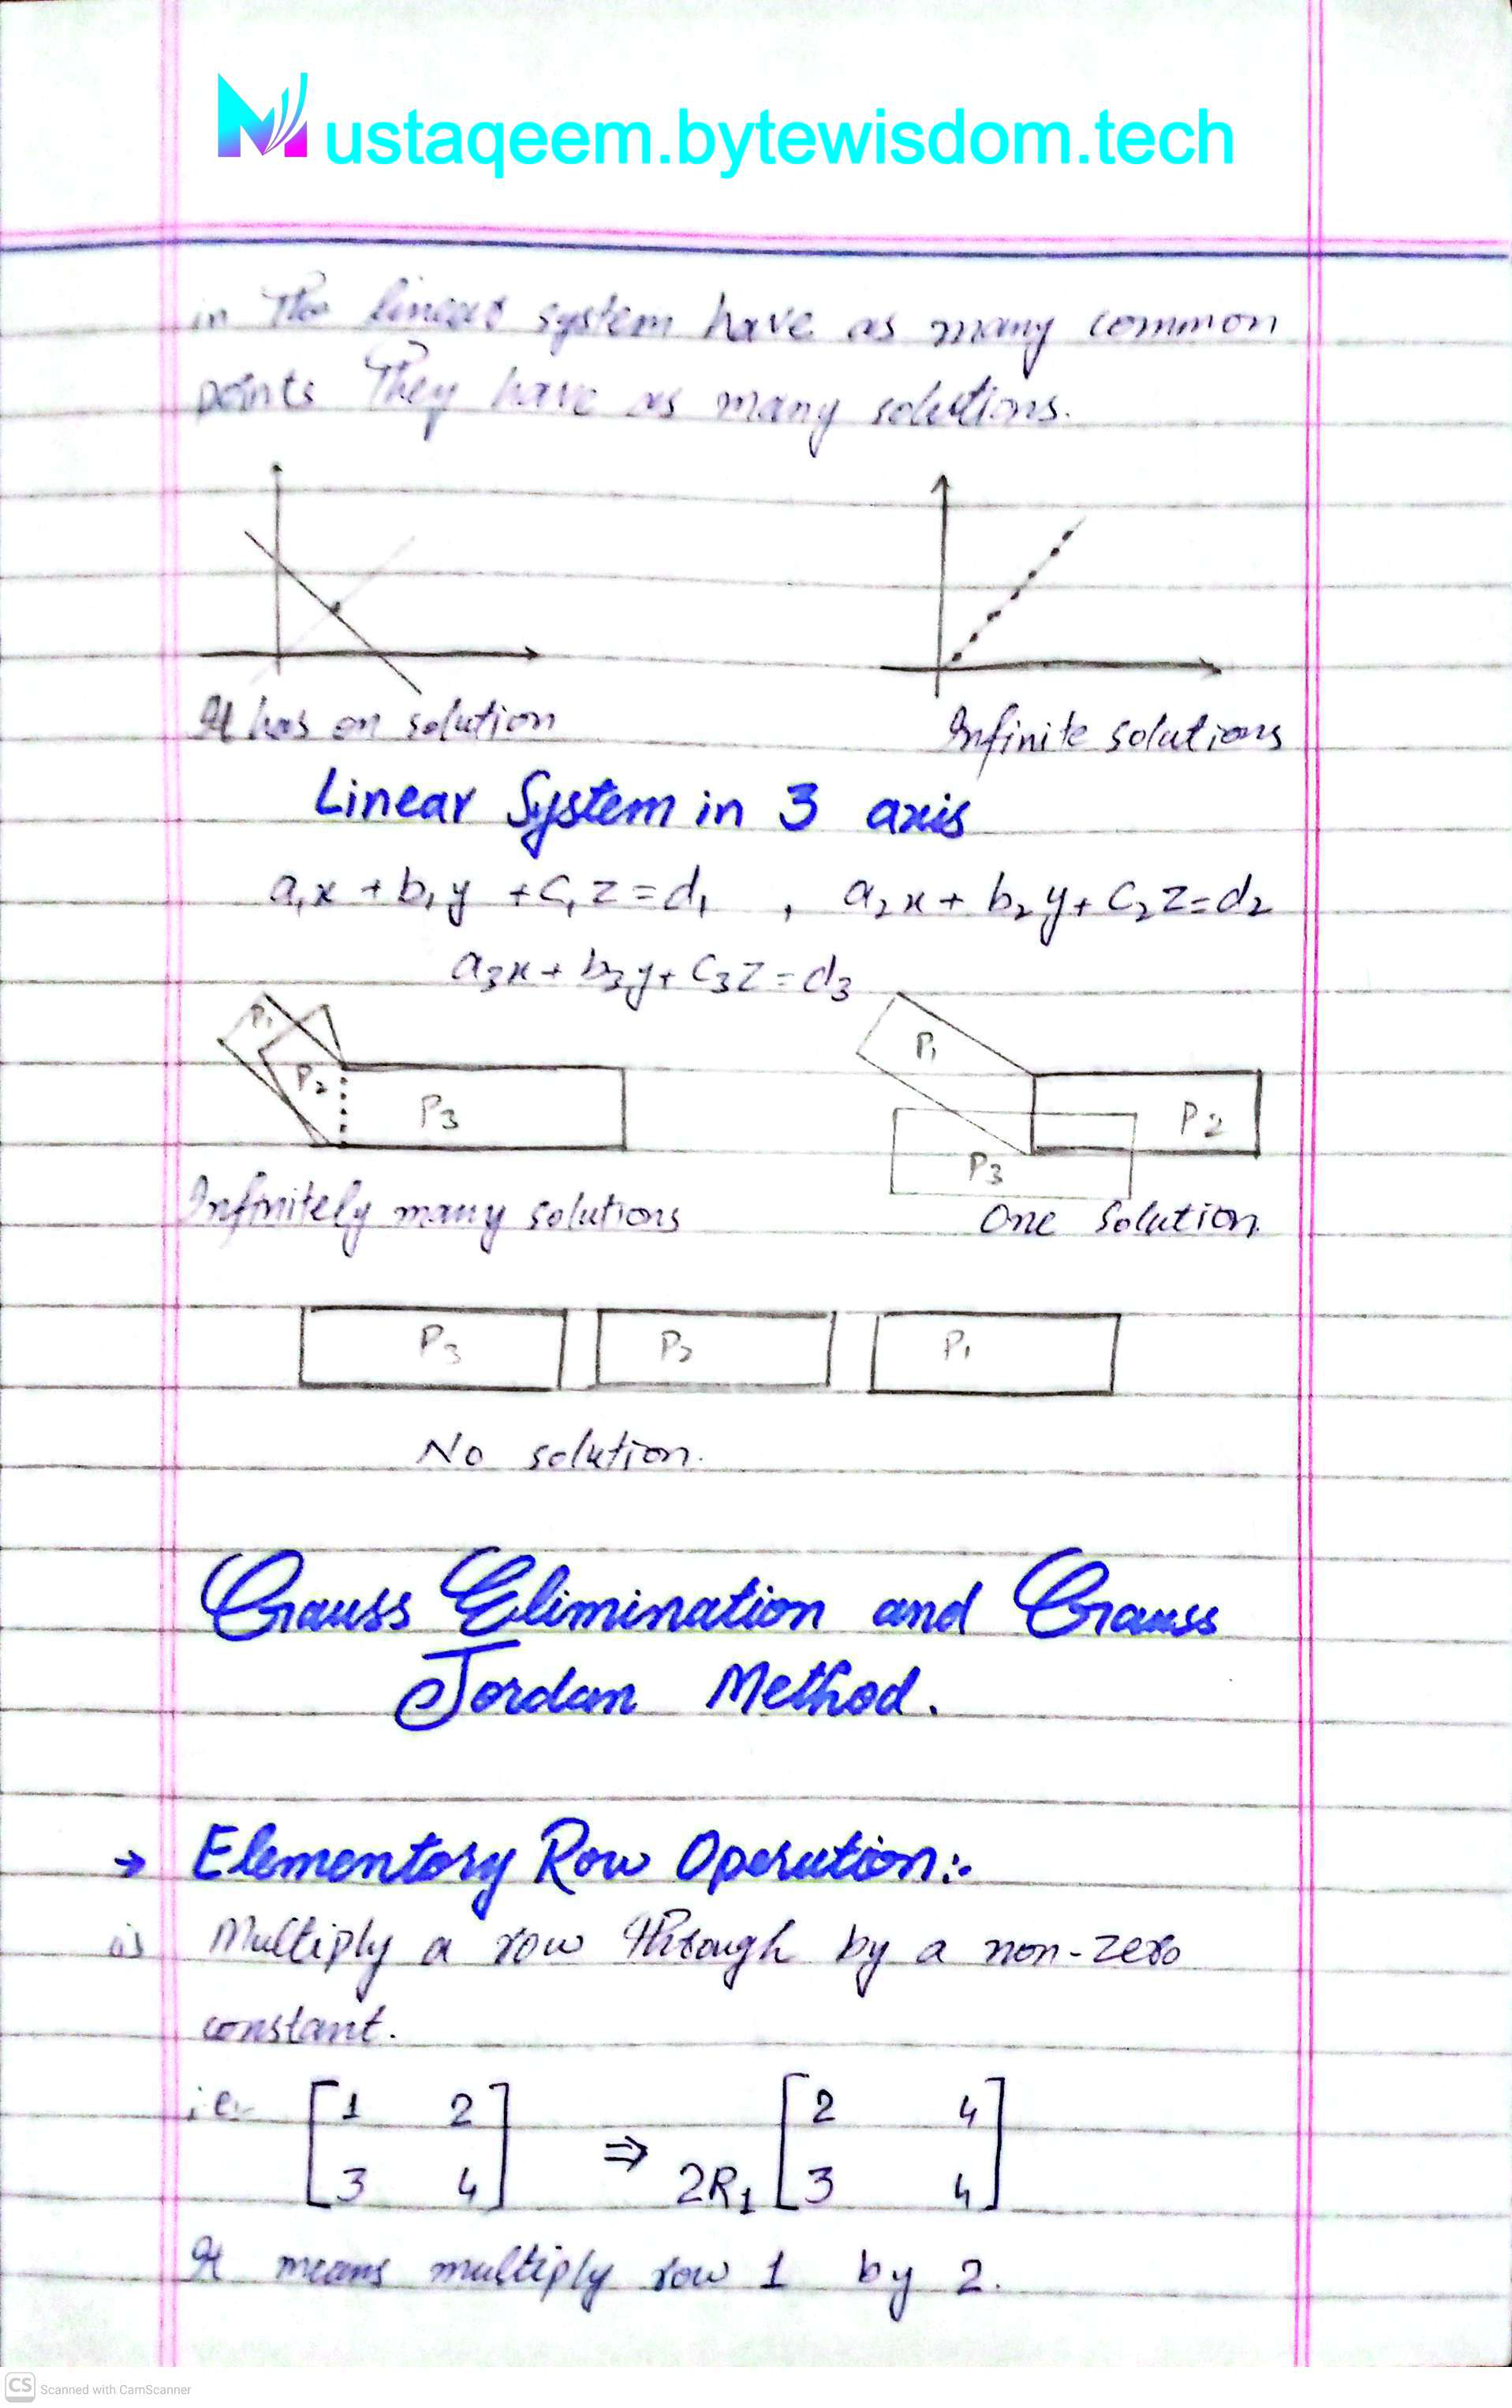 Mustaqeem.bytewisdom.tech
in The linear system have as many common
points They have as many solutions.
It has on solution
Infinite solutions
Linear System in 3 axis
a₁x + b₁y + c₁z = d₁ , a₂x + b₂y + c₂z = d₂
a₃x + b₃y + c₃z = d₃
P₁
P₂
P₃
P₁
P₂
P₃
Infinitely many solutions
One solution.
P₃ P₂ P₁
No solution.
Gauss Elimination and Gauss
Jordan Method.
→ Elementory Row Operation:-
Multiply a row through by a non-zero
constant.
i.e. [1 2 ⇒ [2 4
3 4] 2R₁ 3 4]
It means multiply row 1 by 2.
CS Scanned with CamScanner